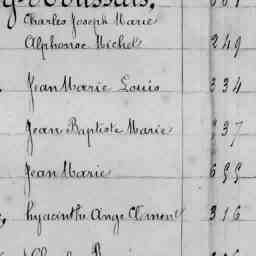 Charles Joseph Marie
Alphonse Michel 249
Jean Marie Louis 334
Jean Baptiste Marie 337
Jean Marie 655
hyacinthe Ange Clément 316